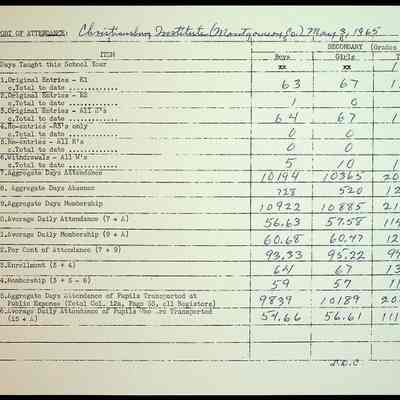 ORT OF ATTENDANCE: Christiansburg Institute (Montgomery Co.) May 3, 1965
SECONDARY (Grades
ITEM Boys Girls T
Days Taught this School Year xx xx 1
1.Original Entries - E1
c.Total to date 63 67 1
2.Original Entries - E2
c.Total to date 1 0
3.Original Entries - All E's
c.Total to date 64 67 1
4.Re-entries -R3's only
c.Total to date 0 0
5.Re-entries - All R's
c.Total to date 0 0
6.Withdrawals - All W's
c.Total to date 5 10 1
7.Aggregate Days Attendance 10194 10365 20
8. Aggregate Days Absence 728 520 12
9.Aggregate Days Membership 10922 10885 21
0.Average Daily Attendance (7 ÷ A) 56.63 57.58 114
1.Average Daily Membership (9 ÷ A) 60.68 60.47 12
2.Per Cent of Attendance (7 ÷ 9) 93.33 95.22 94
3.Enrollment (3 + 4) 64 67 13
4.Membership (3 + 5 - 6) 59 57 11
5.Aggregate Days Attendance of Pupils Transported at
Public Expense (Total Col. 12a, Page 58, all Registers) 9839 10189 20
6.Average Daily Attendance of Pupils Who Are Transported
(15 ÷ A) 54.66 56.61 111